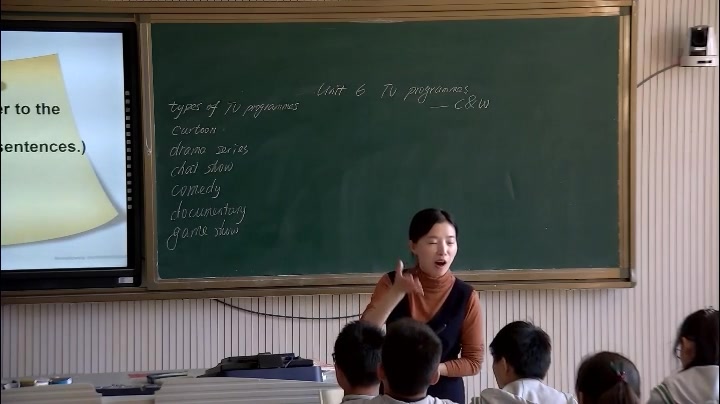 er to the
sentences.)
Unit 6 TV programmes
— C&W
types of TV programmes
cartoon
drama series
chat show
comedy
documentary
game show